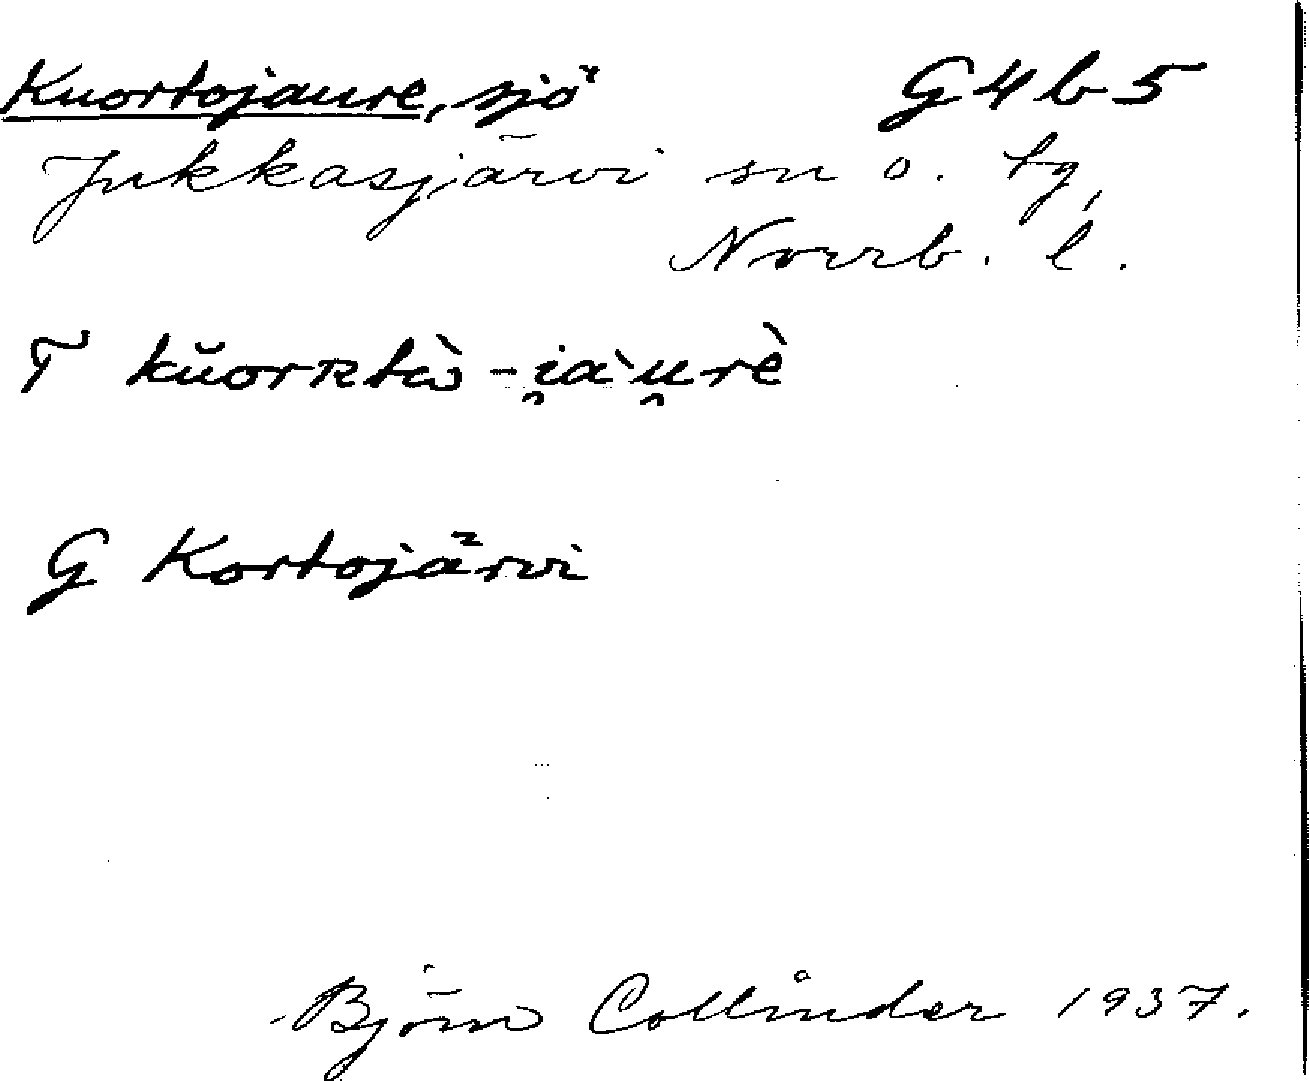 Kuortojaure, sjö G4b5
Jukkasjärvi sn o. tg,
Norrb. l.
T kŭorʀtὼ-i̯àu̯rè
G Kortojärvi
Björn Collinder 1937.